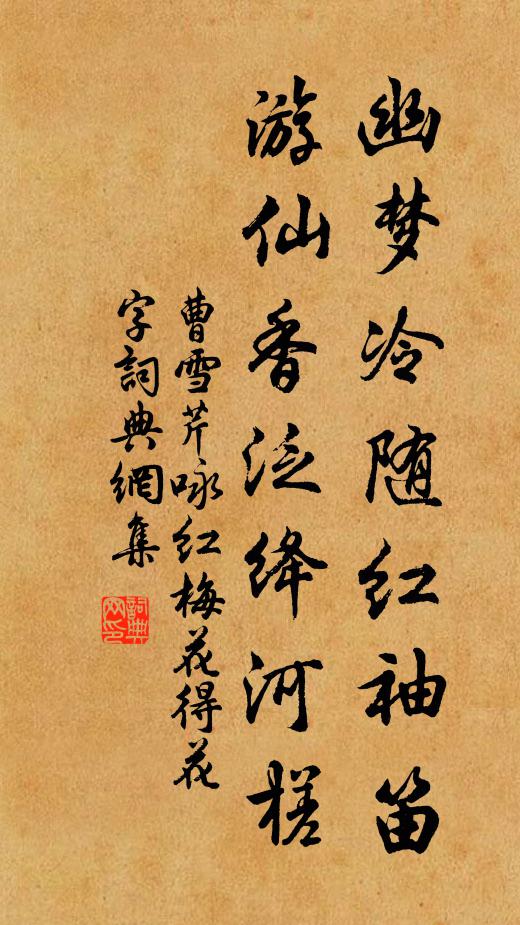 幽梦冷随红袖笛
游仙香泛绛河槎
曹雪芹咏红梅花得花
字詞典網集
詞典
网印